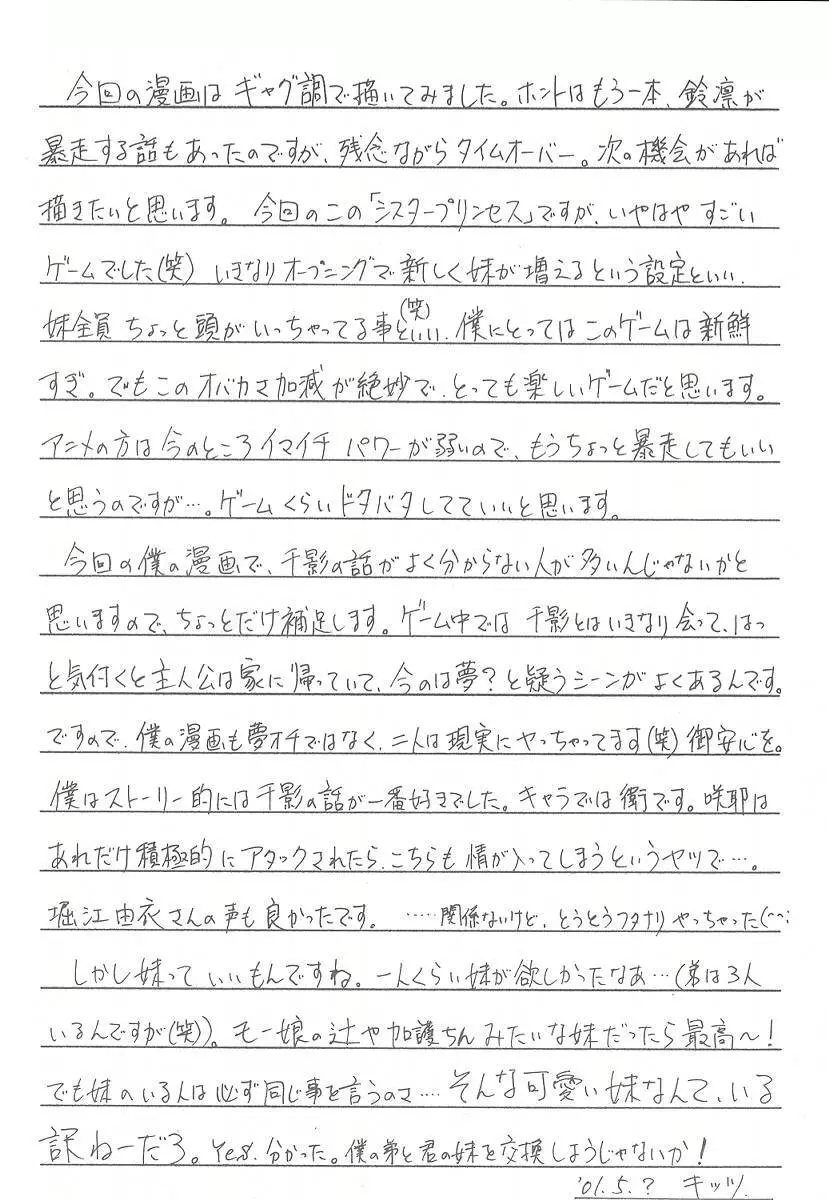 今回の漫画はギャグ調で描いてみました。ホントはもう一本、鈴凛が
暴走する話もあったのですが、残念ながらタイムオーバー。次の機会があれば
描きたいと思います。今回のこの「シスタープリンセス」ですが、いやはやすごい
ゲームでした(笑) いきなりオープニングで新しく妹が増えるという設定といい、
妹全員ちょっと頭がいっちゃってる事といい(笑)、僕にとってはこのゲームは新鮮
すぎ。でもこのオバカさ加減が絶妙で、とっても楽しいゲームだと思います。
アニメの方は今のところイマイチパワーが弱いので、もうちょっと暴走してもいい
と思うのですが…。ゲームくらいドタバタしてていいと思います。
今回の僕の漫画で、千影の話がよく分からない人が多いんじゃないかと
思いますので、ちょっとだけ補足します。ゲーム中では千影とはいきなり会って、はっ
と気付くと主人公は家に帰っていて、今のは夢?と疑うシーンがよくあるんです。
ですので、僕の漫画も夢オチではなく、二人は現実にヤっちゃってます(笑)御安心を。
僕はストーリー的には千影の話が一番好きでした。キャラでは衛です。咲耶は
あれだけ積極的にアタックされたら、こちらも情が入ってしまうというヤツで…。
堀江由衣さんの声も良かったです。 ……関係ないけど、とうとうフタナリやっちゃった(^^;
しかし妹っていいもんですね。一人くらい妹が欲しかったなあ…(弟は3人
いるんですが(笑))。モー娘の辻や加護ちんみたいな妹だったら最高～!
でも妹のいる人は必ず同じ事を言うのさ…そんな可愛い妹なんて、いる
訳ねーだろ。Yes.分かった。僕の弟と君の妹を交換しようじゃないか!
'01.5.? キッツ